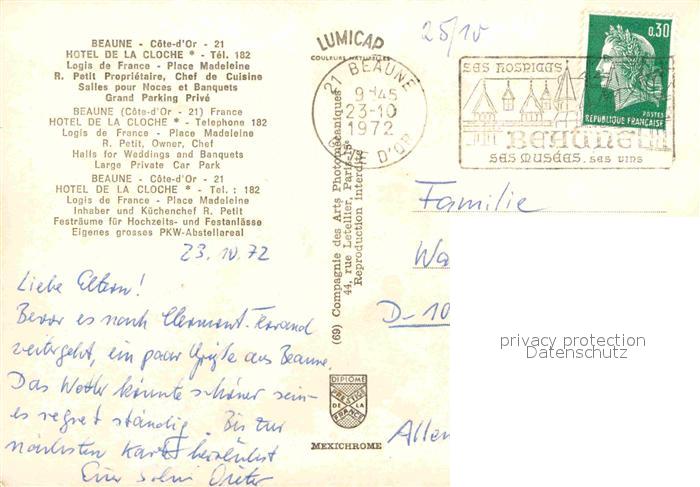 BEAUNE - Côte-d'Or - 21
HOTEL DE LA CLOCHE * - Tél. 182
Logis de France - Place Madeleine
R. Petit Propriétaire, Chef de Cuisine
Salles pour Noces et Banquets
Grand Parking Privé
BEAUNE (Côte-d'Or - 21) France
HOTEL DE LA CLOCHE * - Telephone 182
Logis de France - Place Madeleine
R. Petit, Owner, Chef
Halls for Weddings and Banquets
Large Private Car Park
BEAUNE - Côte-d'Or - 21
HOTEL DE LA CLOCHE * - Tel. : 182
Logis de France - Place Madeleine
Inhaber und Küchenchef R. Petit
Festräume für Hochzeits- und Festanlässe
Eigenes grosses PKW-Abstellareal
23.10.72
Liebe Eltern!
Bevor es nach Clermont-Ferrand
weitergeht, ein paar Grüße aus Beaune.
Das Wetter könnte schöner sein-
es regnet ständig. Bis zur
nächsten Karte herzlichst
Euer Sohn Dieter
LUMICAP
COULEURS NATURELLES
25/10
21 BEAUNE
9H45
23-10
1972
CÔTE D'OR
SES HOSPICES
BEAUNE
SES MUSÉES, SES VINS
0,30
POSTES
REPUBLIQUE FRANÇAISE
(69) Compagnie des Arts Photomécaniques
44, rue Letellier, Paris-15e
Reproduction interdite
DIPLOME
PRESTIGE
DE LA
FRANCE
MEXICHROME
Familie
D-10
privacy protection
Datenschutz